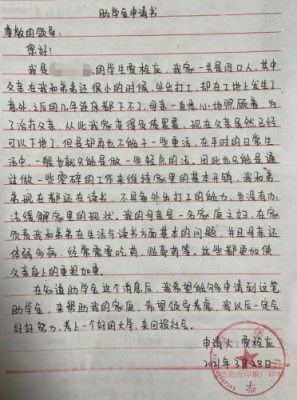 助学金申请书
尊敬的领导：
您好！
我是 的学生贾栓应，我家一共是四口人，其中
父亲在我和弟弟还很小的时候，外出打工，却在工地上发生了
意外，之后的几年连床都下不了，母亲一直悉心地照顾着，为
了治疗父亲，从此我家变得负债累累，现在父亲虽然已经
可以下地了，但是却再也不能干一些重活，在平时的日常生
活中，一般也就只能是做一些轻点的活，因此也只能是通
过做一些零碎的工作来维持家里的基本开销，我和弟
弟现在都还在读书，不具备外出打工的能力，也没有办
法缓解家里的现状。我的母亲是一名家庭主妇，在家
负责我和弟弟在生活读书方面基本的问题，并且母亲还
体弱多病，经常需要吃药，贴膏药等。这些都更加使
父亲身上的重担加重。
在知道助学金这个消息后，我希望能够申请到这笔
助学金，来帮助我的家庭，希望领导考虑，我以后一定会
好好努力，考上一个好的大学，来回报社会。
申请人：贾栓应
2021年3月28日